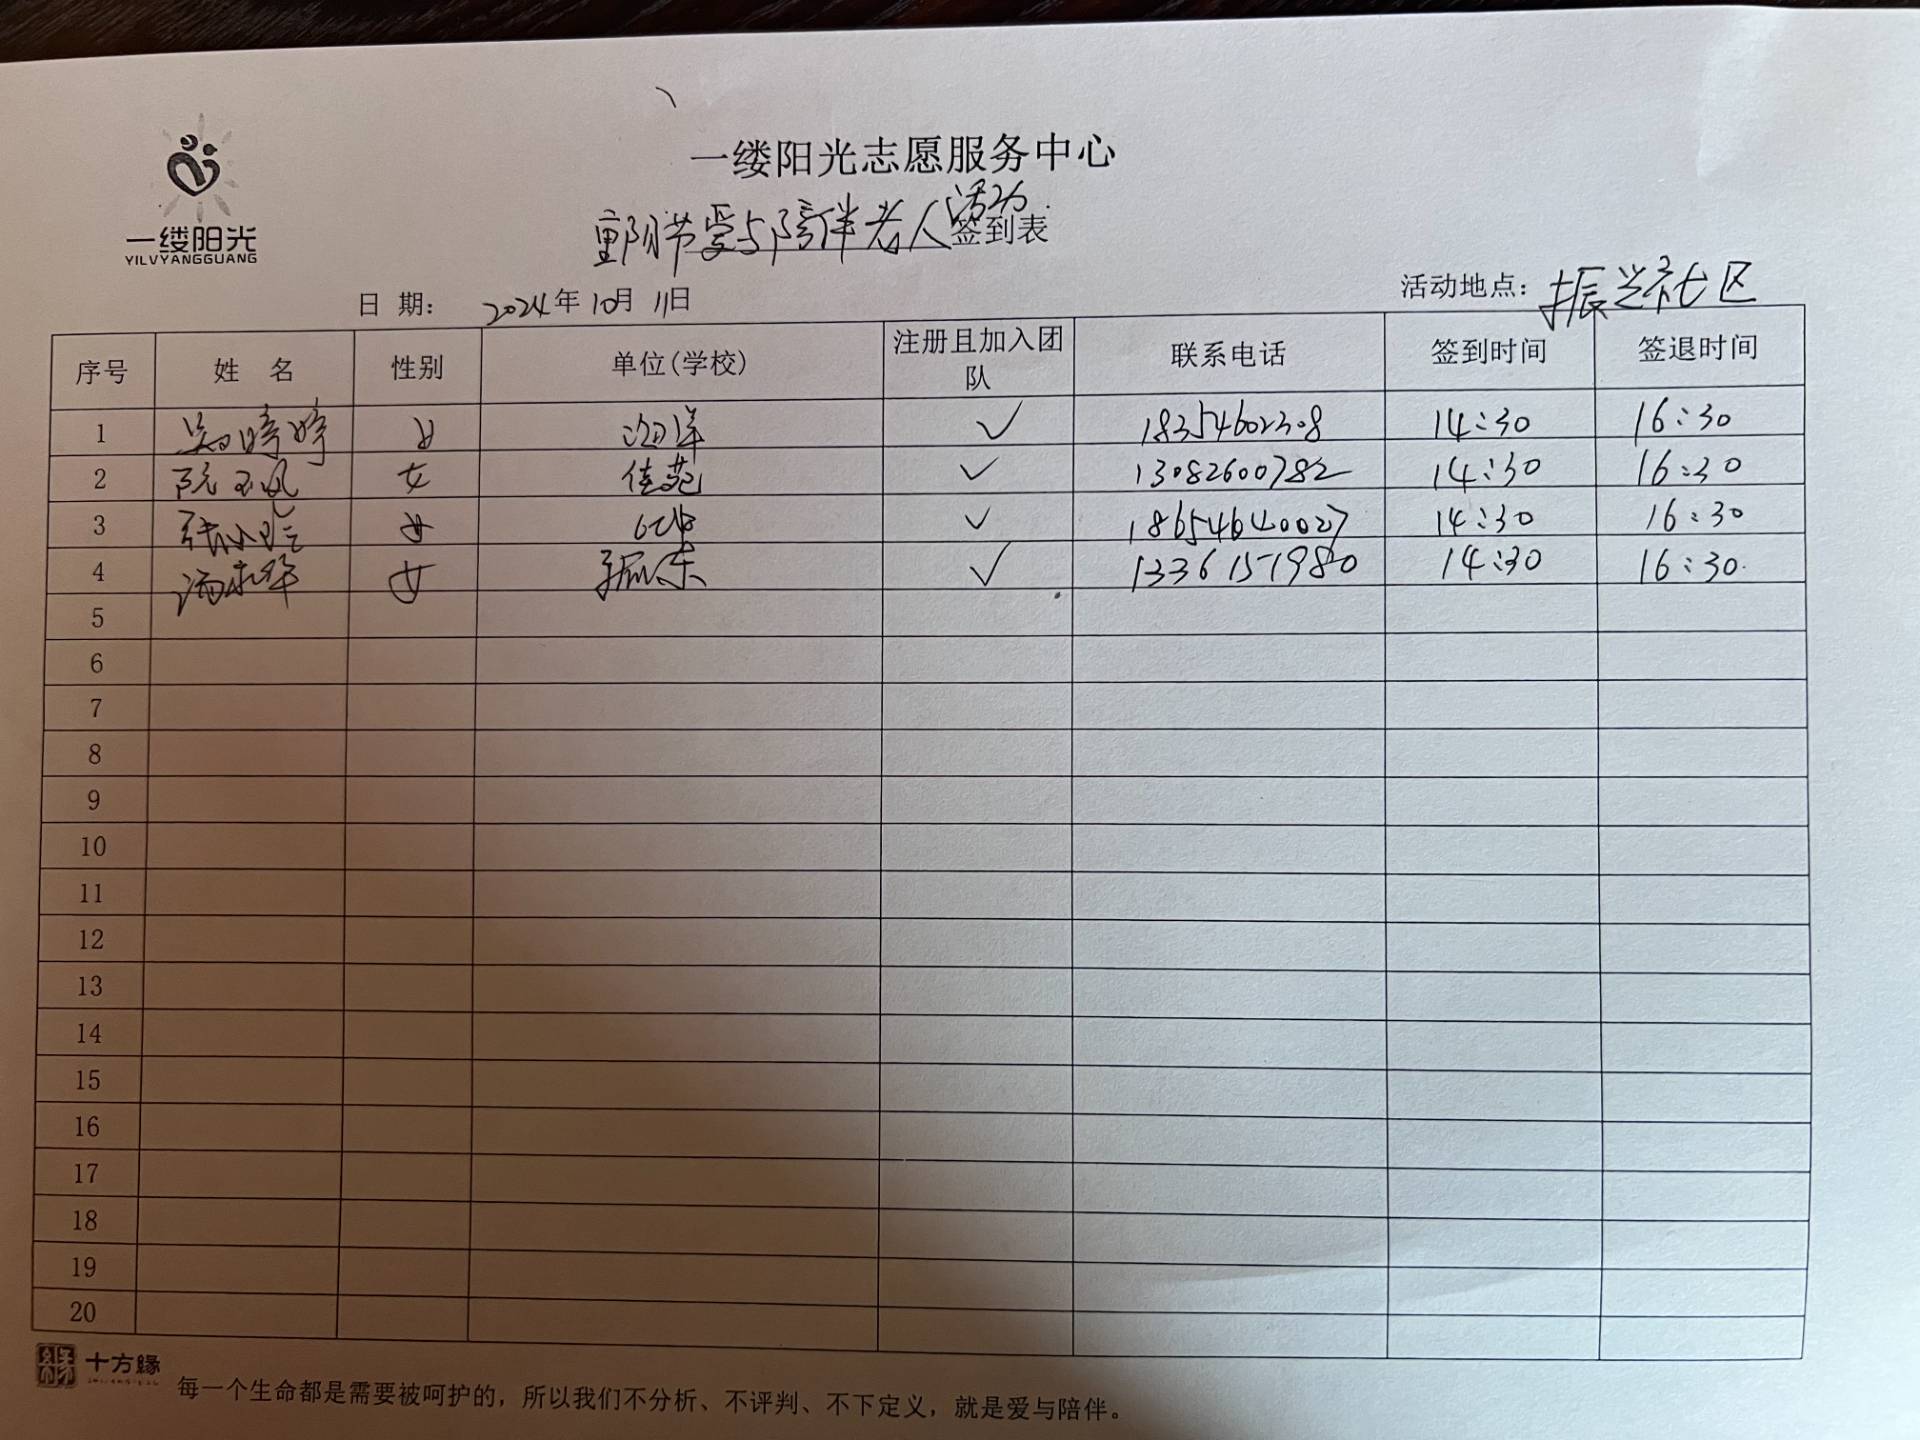 一缕阳光志愿服务中心
一缕阳光
YILVYANGGUANG
重阳节爱与陪伴老人活动签到表
日 期: 2024年10月11日 活动地点: 振兴社区
序号 姓 名 性别 单位(学校) 注册且加入团队 联系电话 签到时间 签退时间
1 女 ✓ 18354602308 14:30 16:30
2 阮玉凤 女 佳苑 ✓ 13082600782 14:30 16:30
3 女 ✓ 18654640027 14:30 16:30
4 女 振东 ✓ 13361571980 14:30 16:30
5
6
7
8
9
10
11
12
13
14
15
16
17
18
19
20
十方缘
每一个生命都是需要被呵护的，所以我们不分析、不评判、不下定义，就是爱与陪伴。